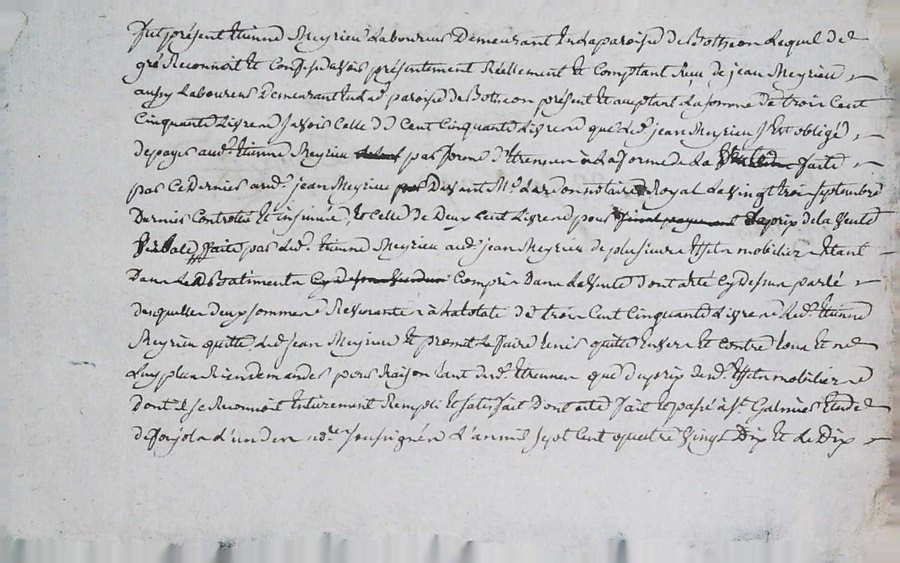 fut présent Etienne Meyrieu Laboureur Demeurant En La paroisse de Bothéon Lequel de
gré Reconnoit Et Confesse avoir présentement Réellement Et Comptant Reçu de jean Meyrieu
aussy Laboureur Demeurant En Lad. paroisse de Bothéon présent Et acceptant La somme de trois Cent
Cinquante Livres Savoir Celle de Cent Cinquante Livres que Led. jean Meyrieu S'Est obligé
de payer aud. Etienne Meyrieu par forme d'Etrennes à La forme de La faite
par Ce Dernier aud. jean Meyrieu Devant Me notaire Royal Le Vingt trois Septembre
Dernier Controllé Et insinué, Et Celle de Deux Cent Livres pour Le prix de la Vente
Verballe faite par Led. Etienne Meyrieu aud. jean Meyrieu de plusieurs Effets mobiliers Etant
Dans Les Batiments Compris Dans La Vente dont a Eté Cy Dessus parlé
desquelles deux sommes Revenantes à La totale de trois Cent Cinquante Livres Led. Etienne
Meyrieu quitte Led. jean Meyrieu Et promet Le faire tenir quitte Envers Et Contre tous Et ne
Luy plus Rien demander pour Raison tant desd. Etrennes que du prix desd. Effets mobiliers
Dont il se Reconnoit Entierement Rempli Et satisfait Dont acte fait Et passé à St. Galmier Etude
de L'un des no.res soussignés L'année Sept Cent quatre Vingt Dix Et Le Dix